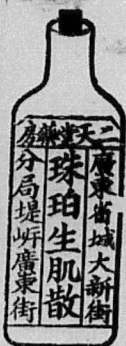 二天堂藥房
廣東省城大新街
珠珀生肌散
分局堤岍廣東街